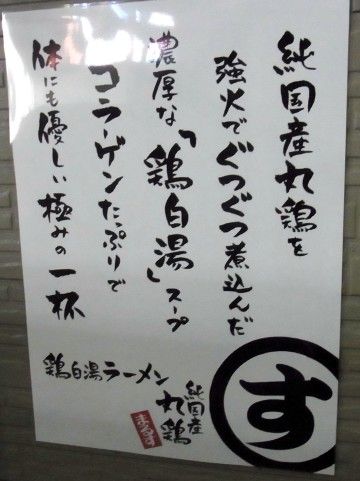 純国産丸鶏を
強火でぐつぐつ煮込んだ
濃厚な「鶏白湯」スープ
コラーゲンたっぷりで
体にも優しい極みの一杯
鶏白湯ラーメン
純国産
丸鶏
まるす
す